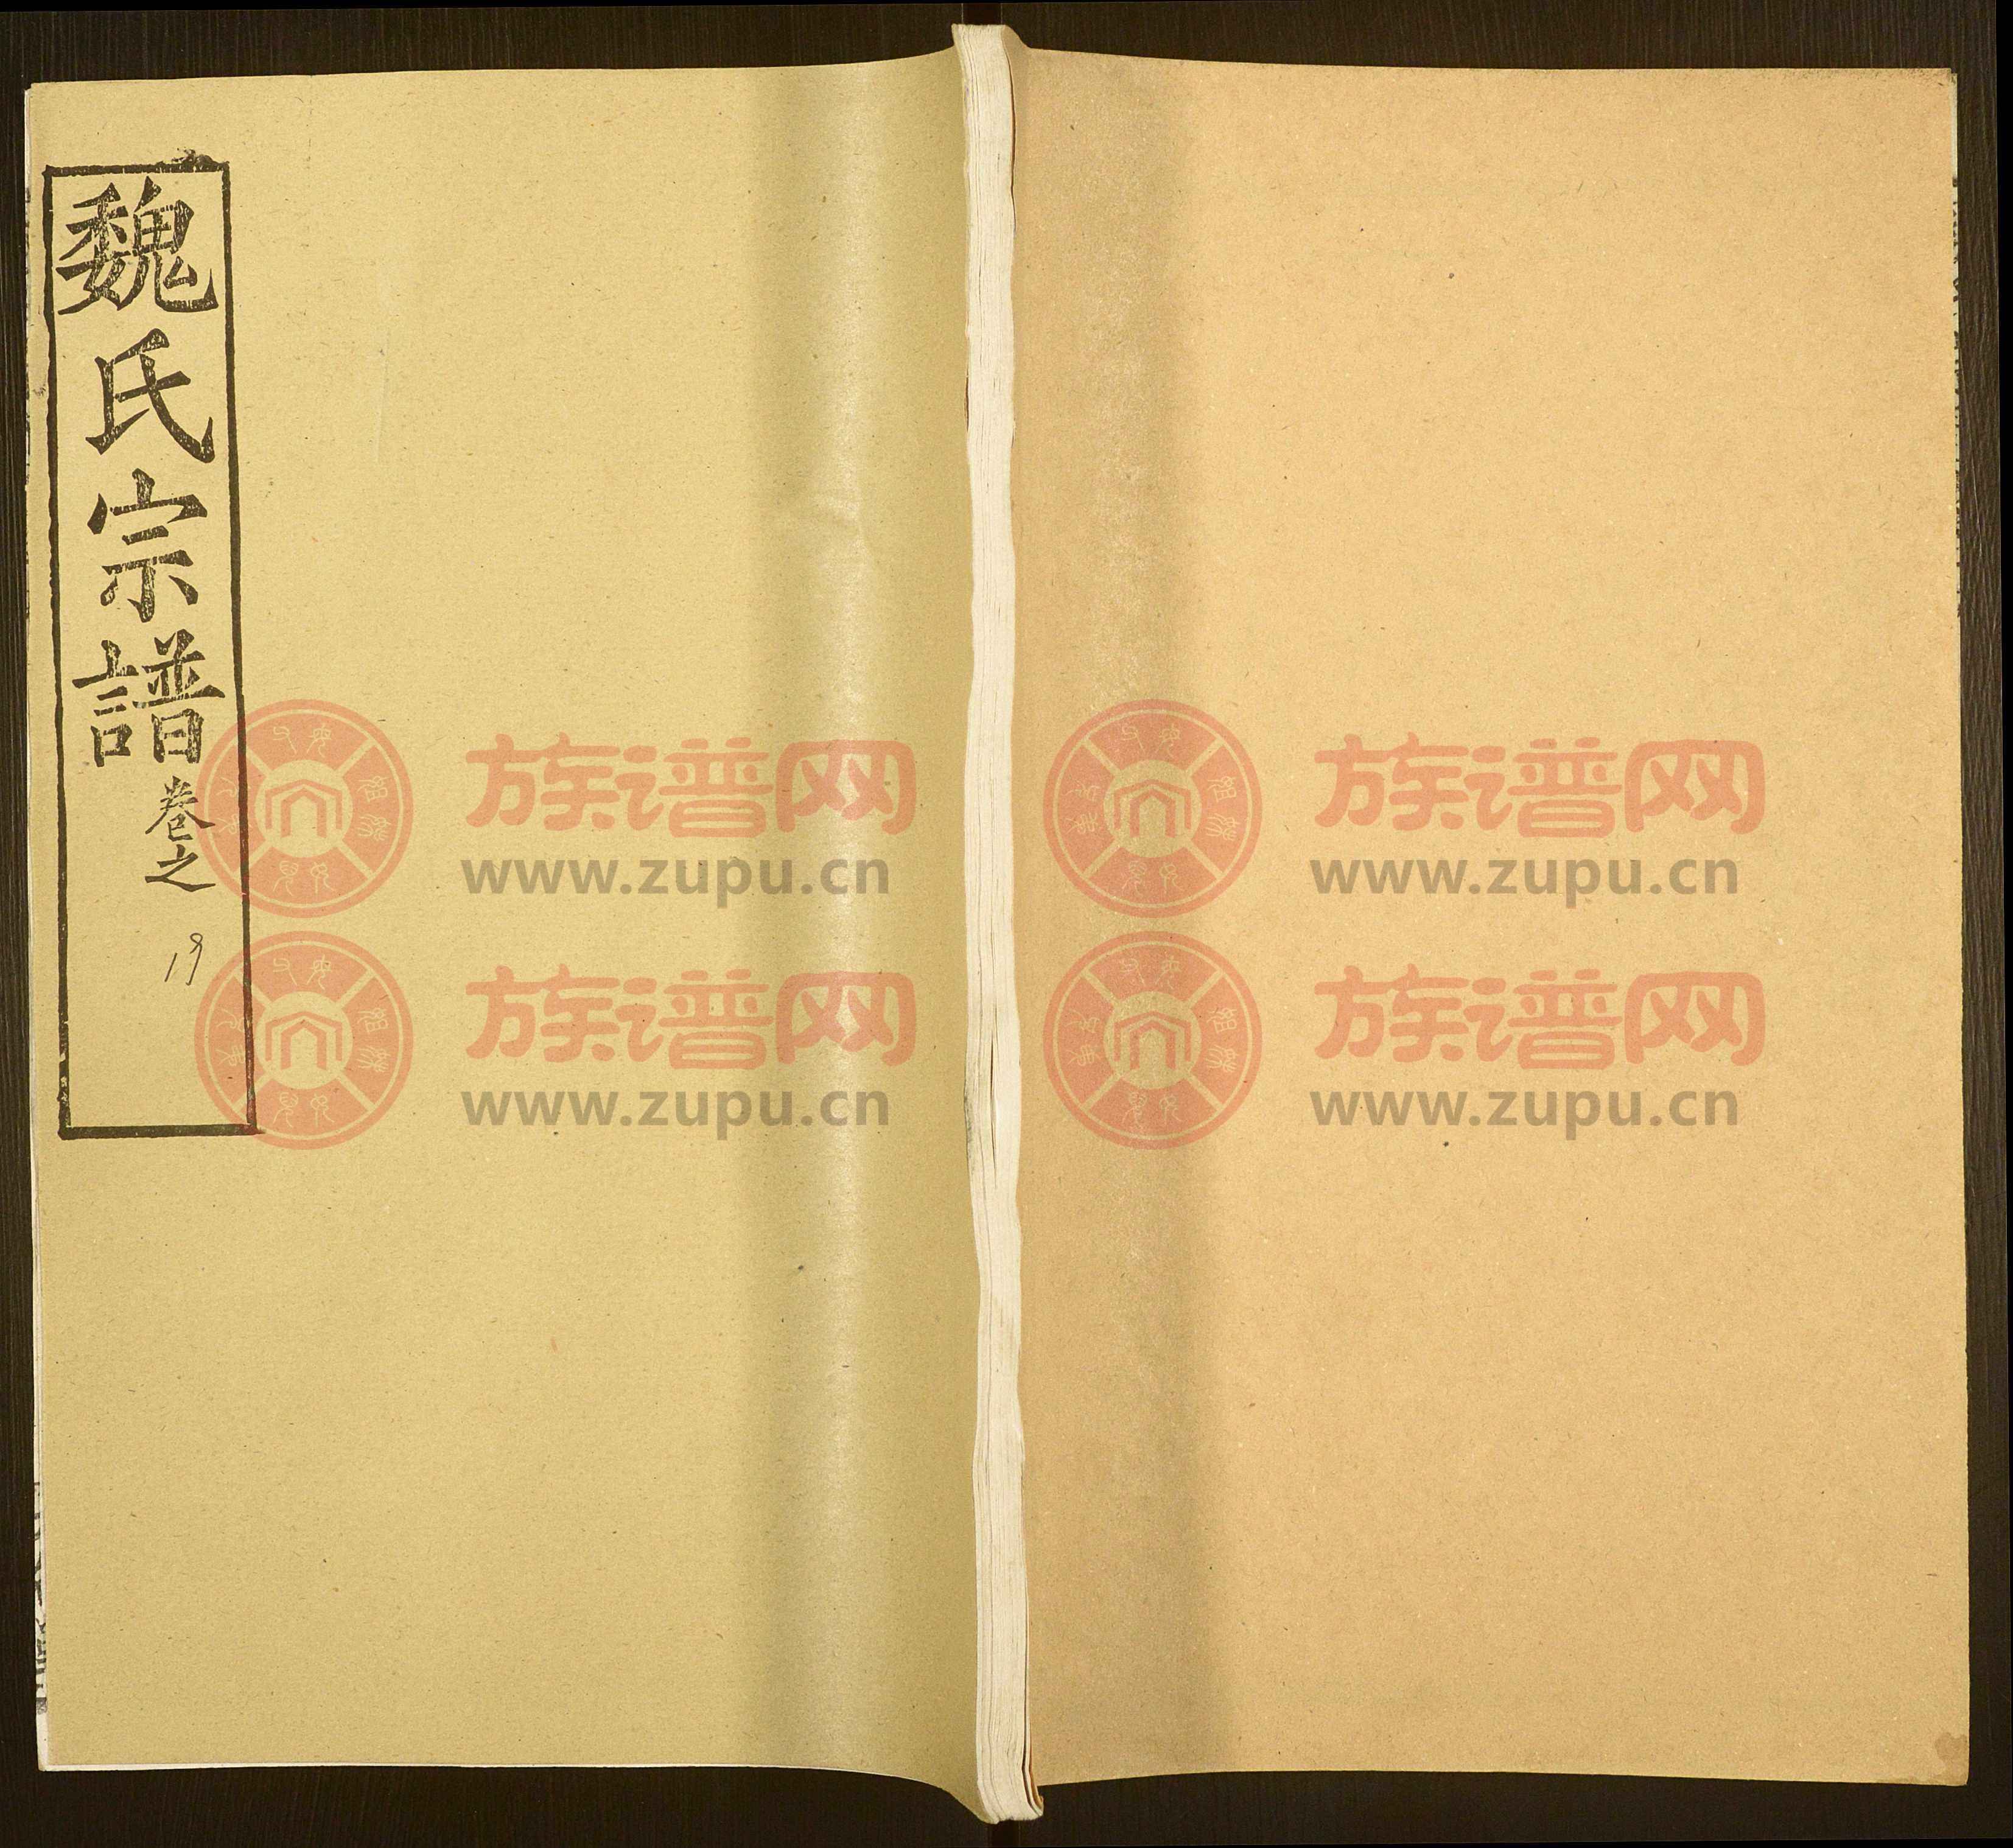 魏氏宗譜
卷之
19
族谱网
www.zupu.cn
族谱网
www.zupu.cn
族谱网
www.zupu.cn
族谱网
www.zupu.cn